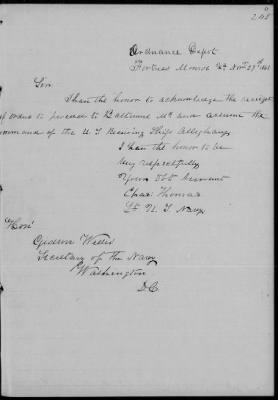 Ordnance Depot
Fortress Monroe Va Novr 27th
Sir
I have the honor to acknowledge the receipt
of orders to proceed to Baltimore Md and assume the
command of the U S Receiving Ship Alleghany
I have the honor to be
Very respectfully
Your Obt Servant
Chas Thomas
Lt U. S. Navy
Hon'
Gideon Welles
Secretary of the Navy
Washington
D.C.